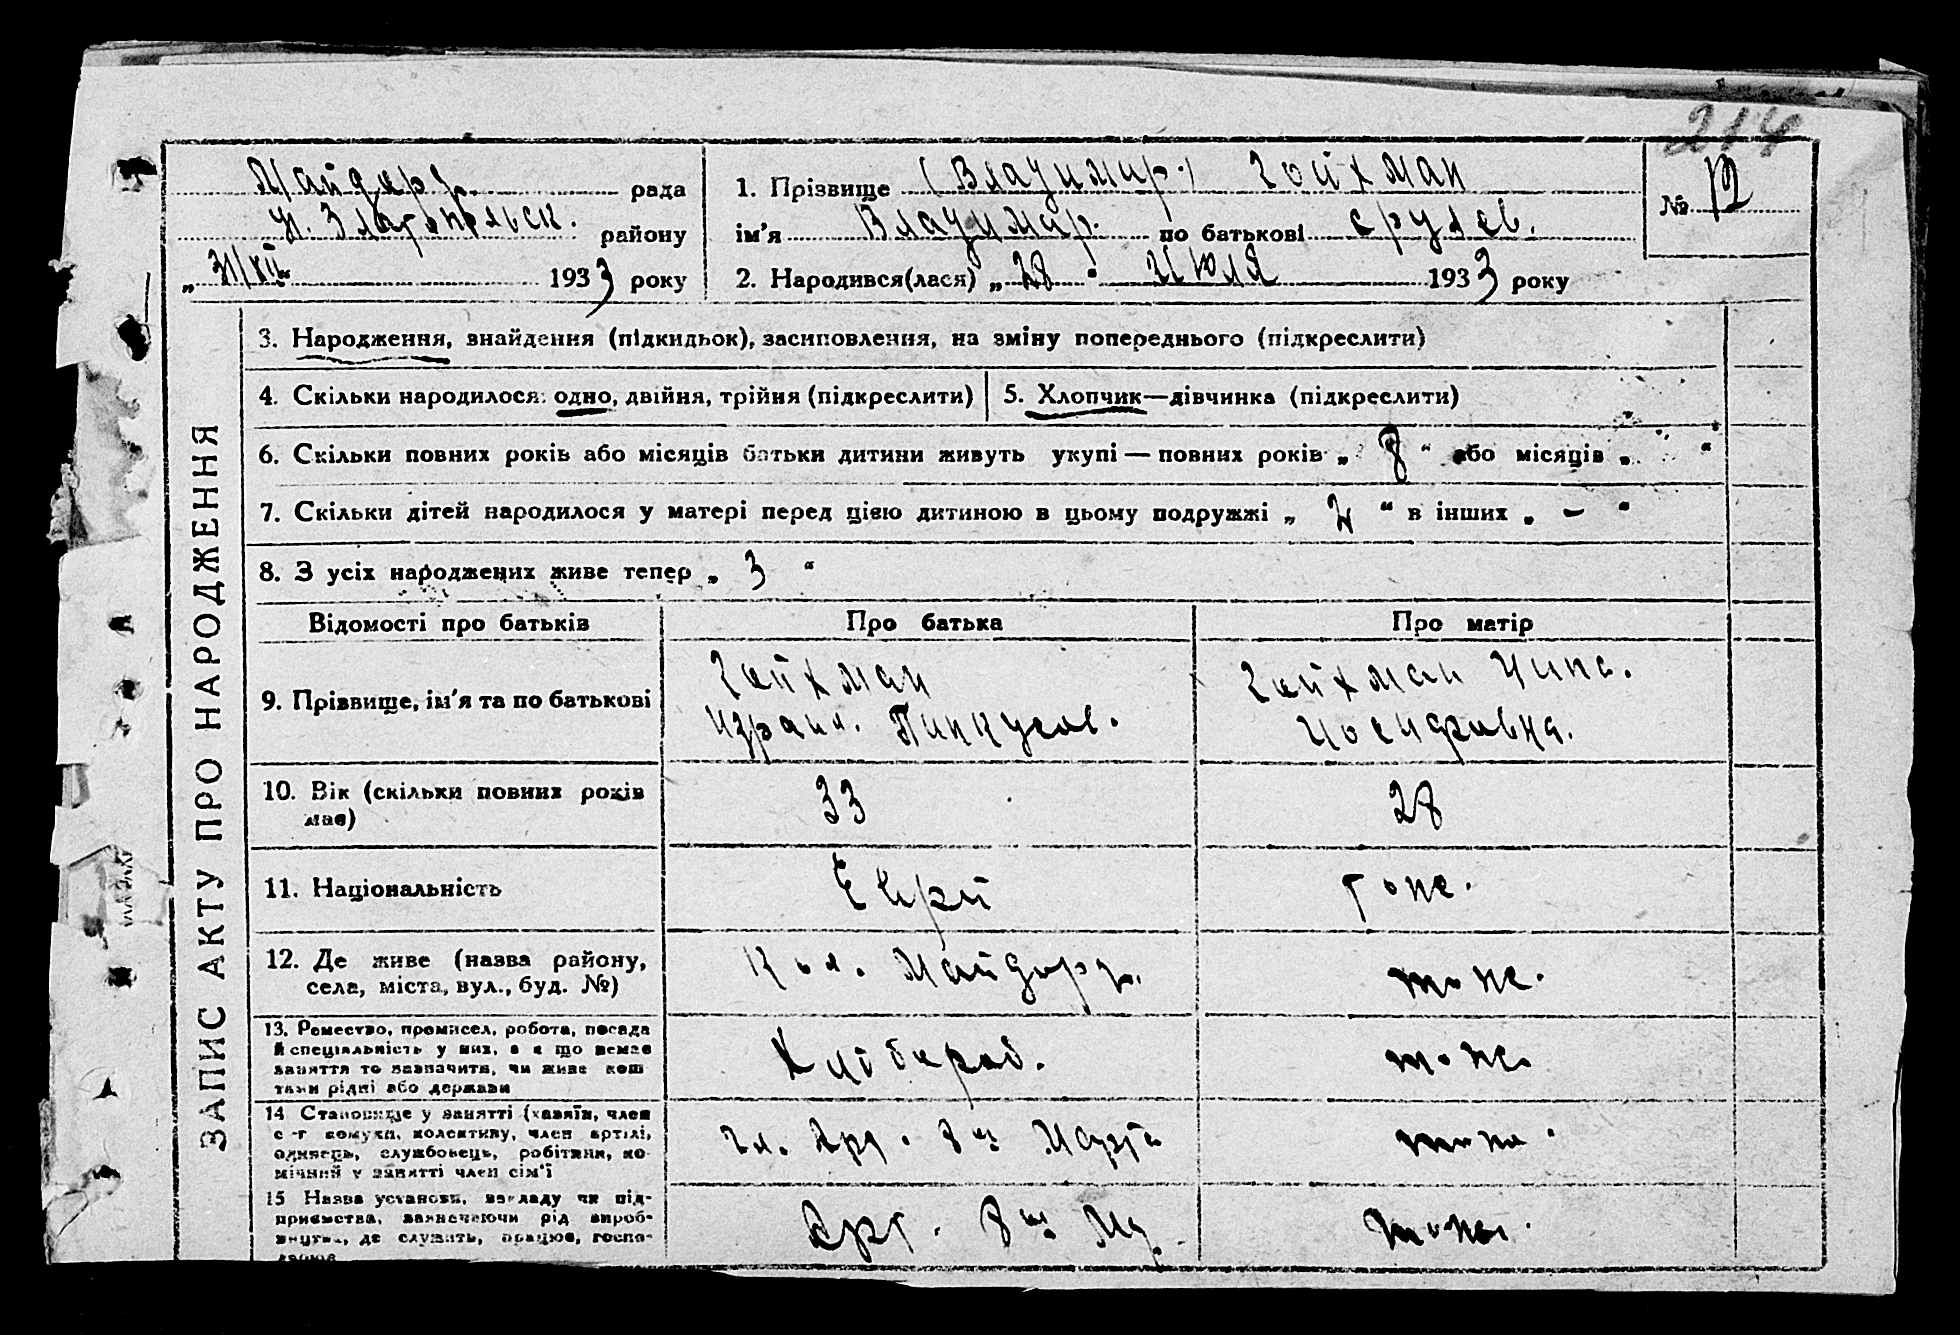 214
Майдорф рада
Н. Златопольск. району
„31/XII 1933 року
1. Прізвище (Владимир) Гойхман
ім'я Владимир. по батькові Срулев.
2. Народився(лася) „28" Июля 1933 року
№ 12
ЗАПИС АКТУ ПРО НАРОДЖЕННЯ
3. Народження, знайдення (підкидьок), засиновлення, на зміну попереднього (підкреслити)
4. Скільки народилося: одно, двійня, трійня (підкреслити)
5. Хлопчик—дівчинка (підкреслити)
6. Скільки повних років або місяців батьки дитини живуть укупі — повних років „ 8 “ або місяців „ “
7. Скільки дітей народилося у матері перед цією дитиною в цьому подружжі „ 2 “ в інших „ – “
8. З усіх народжених живе тепер „ 3 “
Відомості про батьків
Про батька
Про матір
9. Прізвище, ім'я та по батькові
Гойхман
Израил. Пинкусов.
Гойхман
Иосифовна.
10. Вік (скільки повних років
має)
33
28
11. Національність
Еврей
Тоже.
12. Де живе (назва району,
села, міста, вул., буд. №)
Кол. Майдорф.
тоже.
13. Ремество, промисел, робота, посада
й спеціяльність у них, а як що немає
заняття то зазначити, чи живе кош
тами рідні або держави
Хлебороб.
тоже
14 Становище у занятті (хазяїн, член
с-г комуни, колективу, член артілі,
одинець, службовець, робітник, по-
мічний у занятті член сім'ї
чл. Арт. 8го Марта
тоже.
15 Назва установи, закладу чи під-
приємства, зазначаючи рід вироб-
ництва, де служить, працює, госпо-
дарює
Арт. 8го Ма.
тоже.